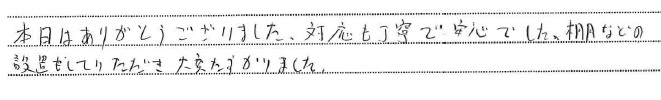 本日はありがとうございました、対応も丁寧で安心でした、棚などの
設置もしていただき大変たすかりました。